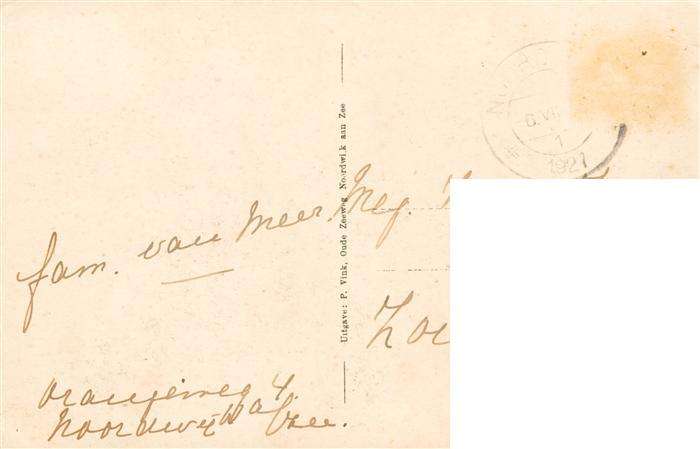 fam. van Meer
Oranjeweg 4.
Noordwijk a/Zee.
Uitgave: P. Vink, Oude Zeeweg Noordwijk aan Zee
6.VI
1
1927
Mej.